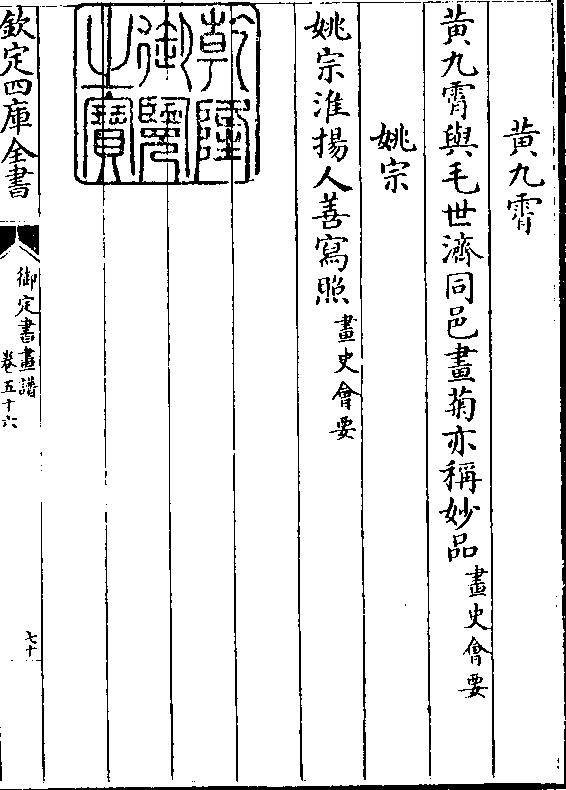 黄九霄
黄九霄與毛世濟同邑畫菊亦稱妙品畫史會要
姚宗
姚宗淮揚人善寫照畫史會要
乾隆御覽之寶
欽定四庫全書
御定書畫譜
卷五十六
七十